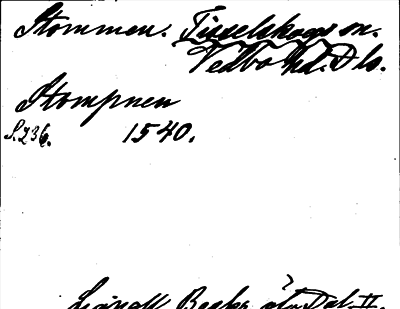 Stommen. Tisselskogs sn.
Vedbo hd. Dls.
Stompnen
S. 236. 1540.
Dal. II.